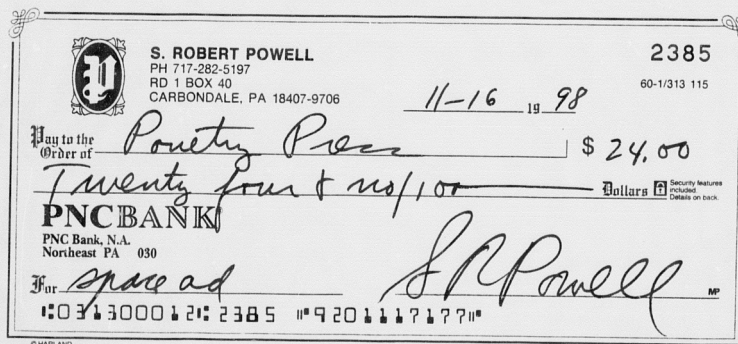 S. ROBERT POWELL
PH 717-282-5197
RD 1 BOX 40
CARBONDALE, PA 18407-9706
2385
60-1/313 115
11-16 19 98
Pay to the Order of Pouetry Press $ 24.00
Twenty four & no/100 Dollars Security features included. Details on back.
PNCBANK
PNC Bank, N.A.
Northeast PA 030
For space ad S R Powell MP
⑆031300012⑆ 2385 ⑈9201117177⑈
© HARLAND